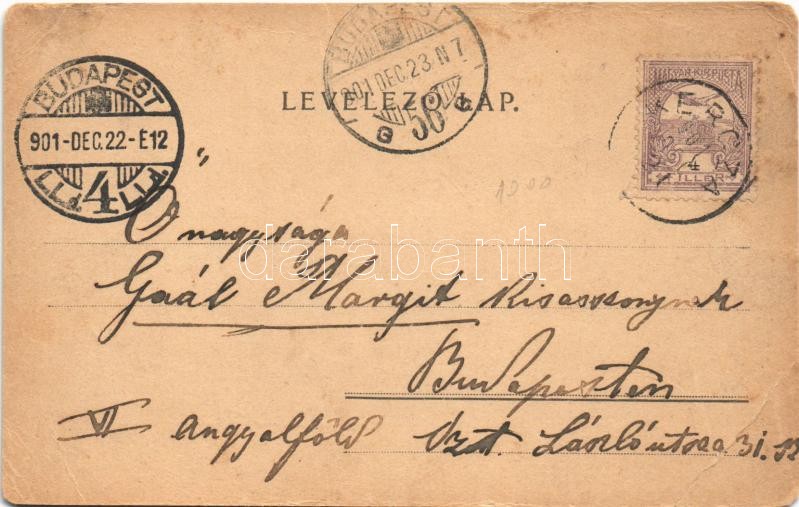 BUDAPEST
901-DEC.22-É12
4
BUDAPEST
901 DEC.23.N 7
G 56 G
LEVELEZŐ-LAP.
MAGYAR KIR. POSTA
4
FILLÉR
1900
Ő nagysága
Gaál Margit kisasszonynak
Budapesten
VI angyalföld Szt. László utcza 31. sz
darabanth